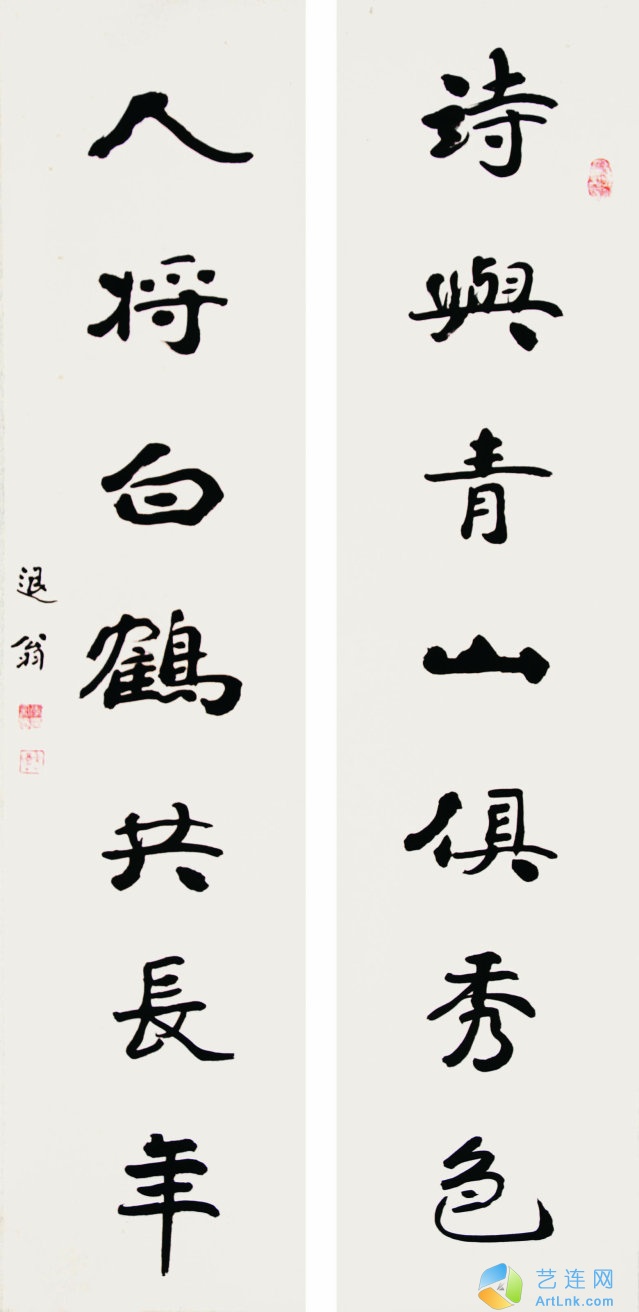 詩與青山俱秀色
人将白鶴共長年
退翁
艺连网
ArtLnk.com